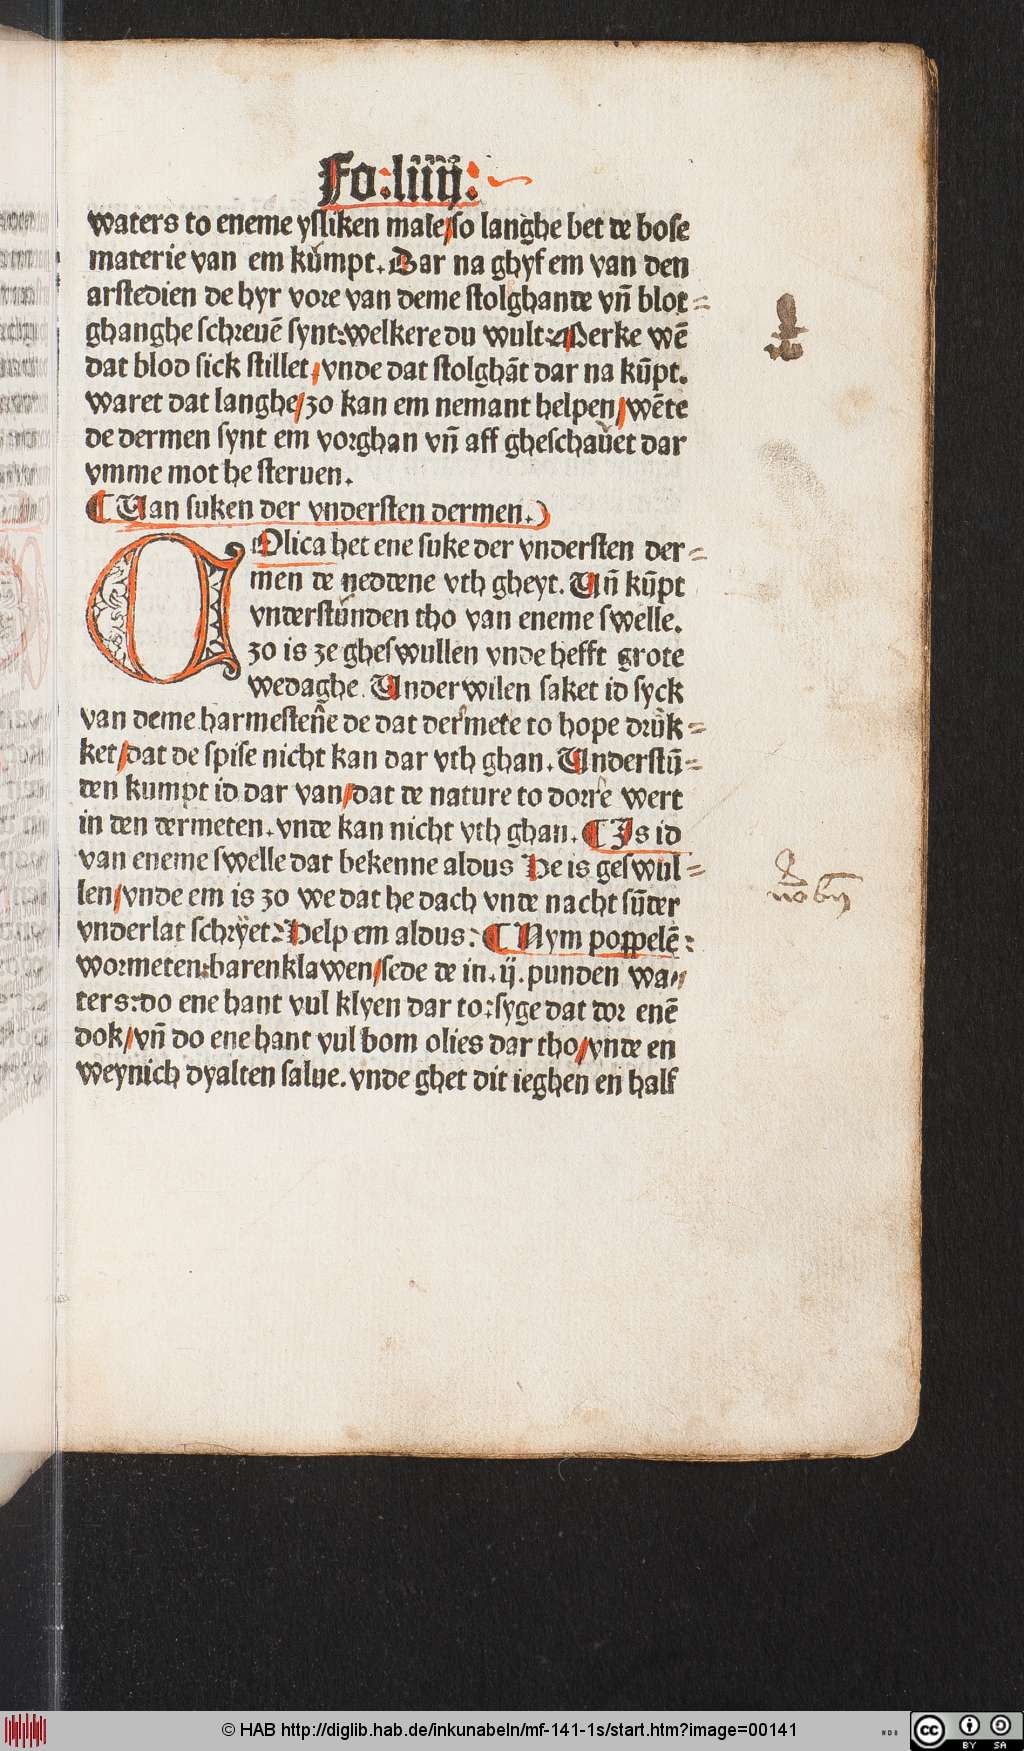 Fo: liiij:
waters to eneme ysliken male/so langhe bet de bose
materie van em kůmpt. Dar na ghyf em van den
arstedien de hyr vore van deme stolghande vn̄ blot=
ghanghe schreuē synt: welkere du wult: Merke wē
dat blod sick stillet/vnde dat stolghāt dar na kūpt.
waret dat langhe/zo kan em nemant helpen/wēte
de dermen synt em vorghan vn̄ aff gheschauet dar
vmme mot he steruen.
¶ Van suken der vndersten dermen.
COlica het ene suke der vndersten der=
men de neddene vth gheyt. Un̄ kūpt
vnderstůnden tho van eneme swelle.
zo is ze gheswullen vnde hefft grote
wedaghe. Underwilen saket id syck
van deme harmesteñe de dat dermete to hope drůk=
ket/dat de spise nicht kan dar vth ghan. Understū=
den kumpt id dar van/dat de nature to dorre wert
in den dermeten. vnde kan nicht vth ghan. ¶ Is id
van eneme swelle dat bekenne aldus He is geswul=
len/vnde em is zo we dat he dach vnde nacht sūder
vnderlat schryet: Help em aldus: ¶ Nym poppelē:
wormeten: barenklawen/sede de in. ij. punden wa=
ters: do ene hant vul klyen dar to: syge dat dor enē
dok/vn̄ do ene hant vul bom olies dar tho/vnde en
weynich dyalten salue. vnde ghet dit ieghen en half
© HAB http://diglib.hab.de/inkunabeln/mf-141-1s/start.htm?image=00141
WDB
cc
BY SA